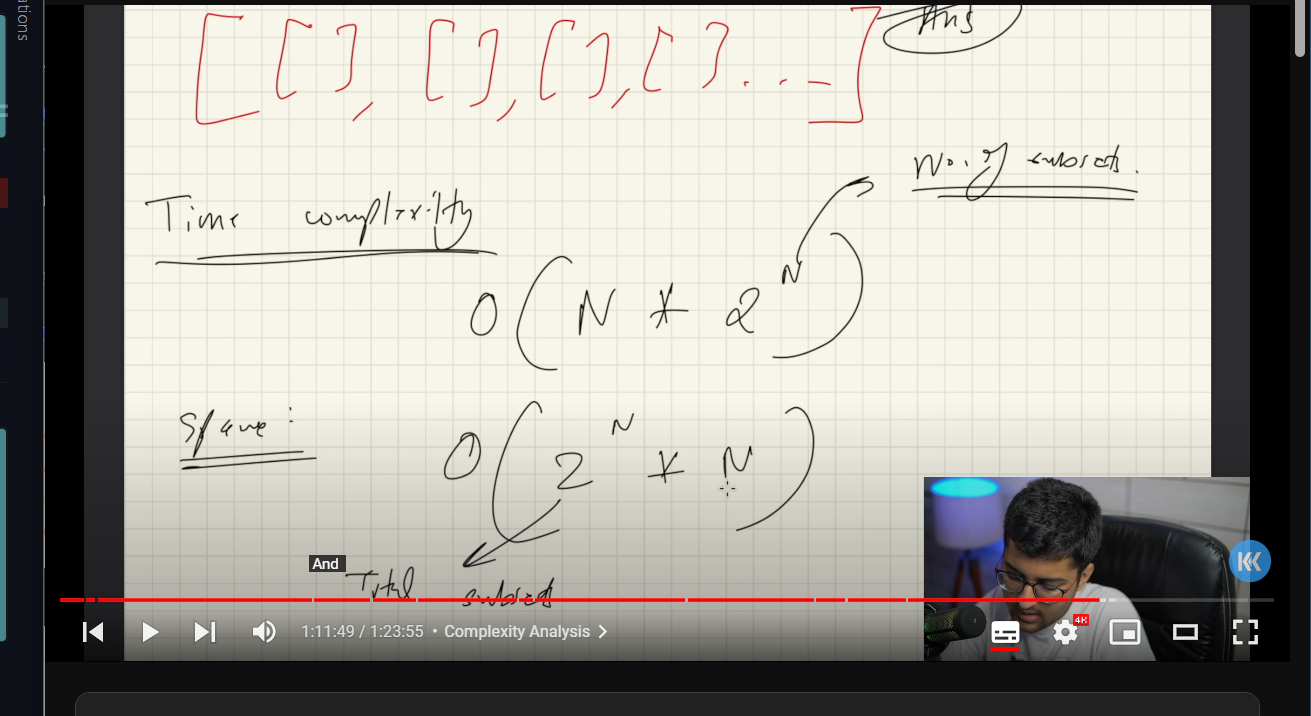 ations
Ans
[[ ], [ ], [ ], [ ] . . . _]
No. of subsets.
Time complexity
O(N * 2^N)
Space:
O(2^N * N)
And
Total subsets
K
4K
1:11:49 / 1:23:55 • Complexity Analysis